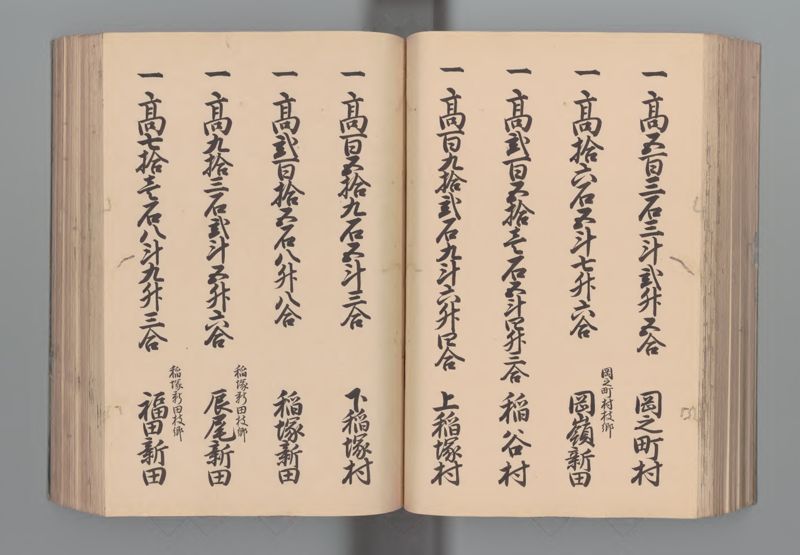 一髙五百三石三斗弐升五合 岡之町村
一髙拾六石五斗七升六合
岡之町村枝郷
岡嶺新田
一髙弐百五拾壱石五斗四升三合 稲谷村
一髙百九拾弐石九斗六升四合 上稲塚村
一髙百五拾九石五斗三合 下稲塚村
一髙弐百拾五石八升八合 稲塚新田
一髙九拾三石弐斗五升六合
稲塚新田枝郷
辰尾新田
一髙七拾壱石八斗九升三合
稲塚新田枝郷
福田新田